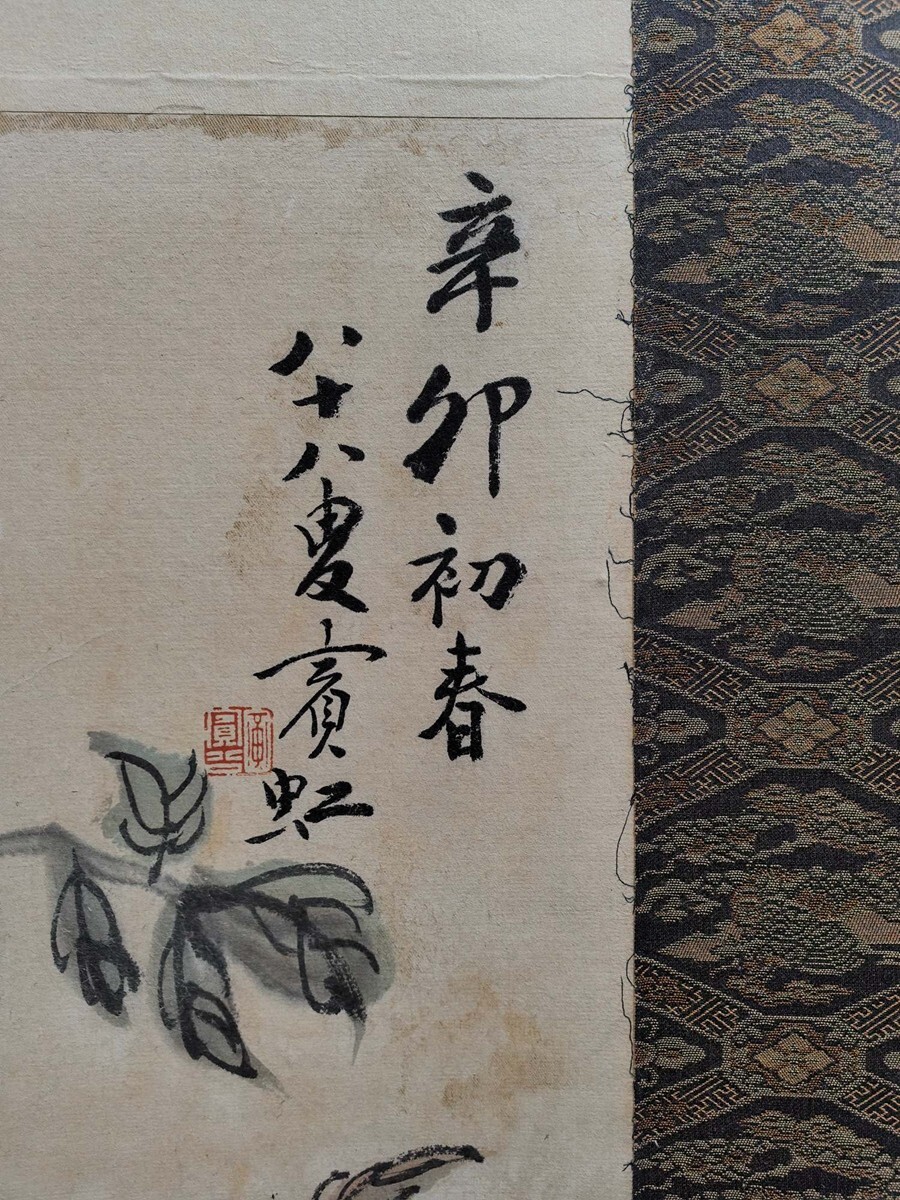 辛卯初春
八十八叟賓虹